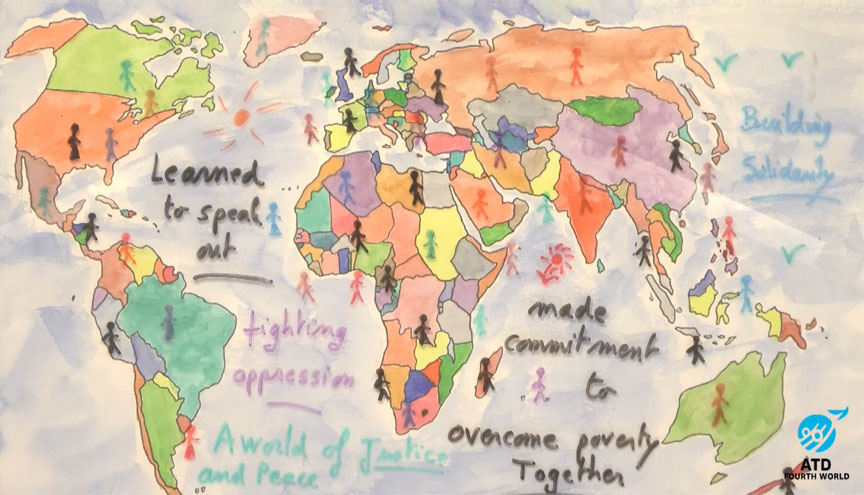 Learned
to speak
out
Building
Solidarity
fighting
oppression
made
commitment
to
overcome poverty
Together
A World of Justice
and Peace
ATD
FOURTH WORLD